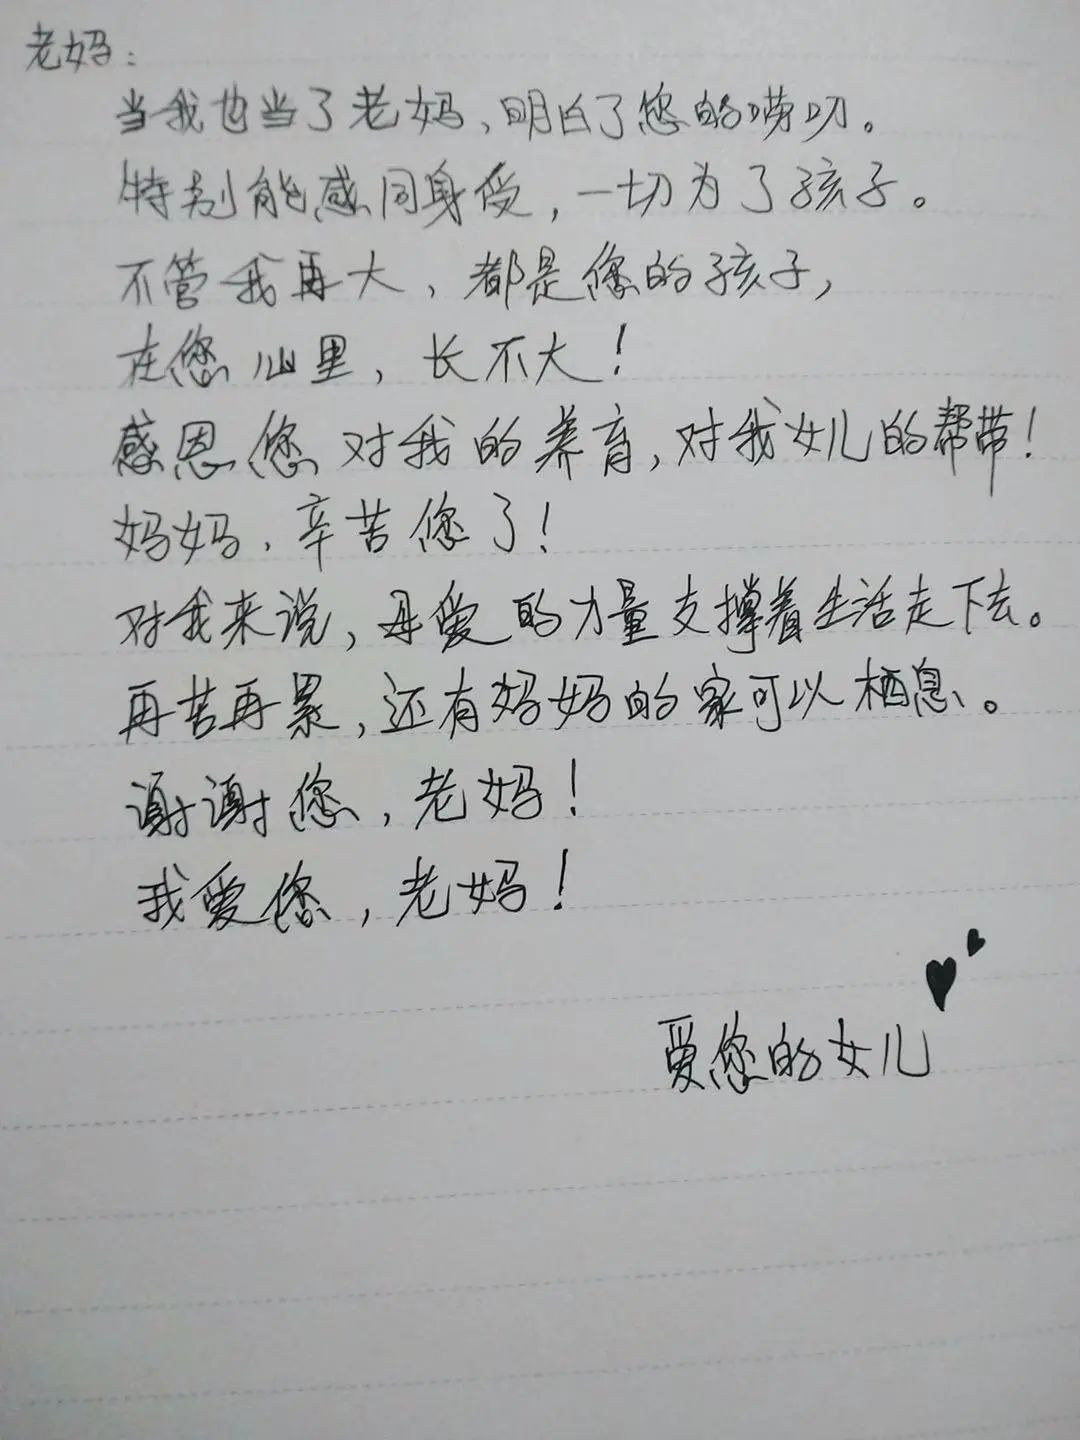 老妈：
当我也当了老妈、明白了您的唠叨。
特别能感同身受，一切为了孩子。
不管我再大，都是您的孩子，
在您心里，长不大！
感恩您对我的养育，对我女儿的帮带！
妈妈、辛苦您了！
对我来说，母爱的力量支撑着生活走下去。
再苦再累，还有妈妈的家可以栖息。
谢谢您，老妈！
我爱您，老妈！
爱您的女儿